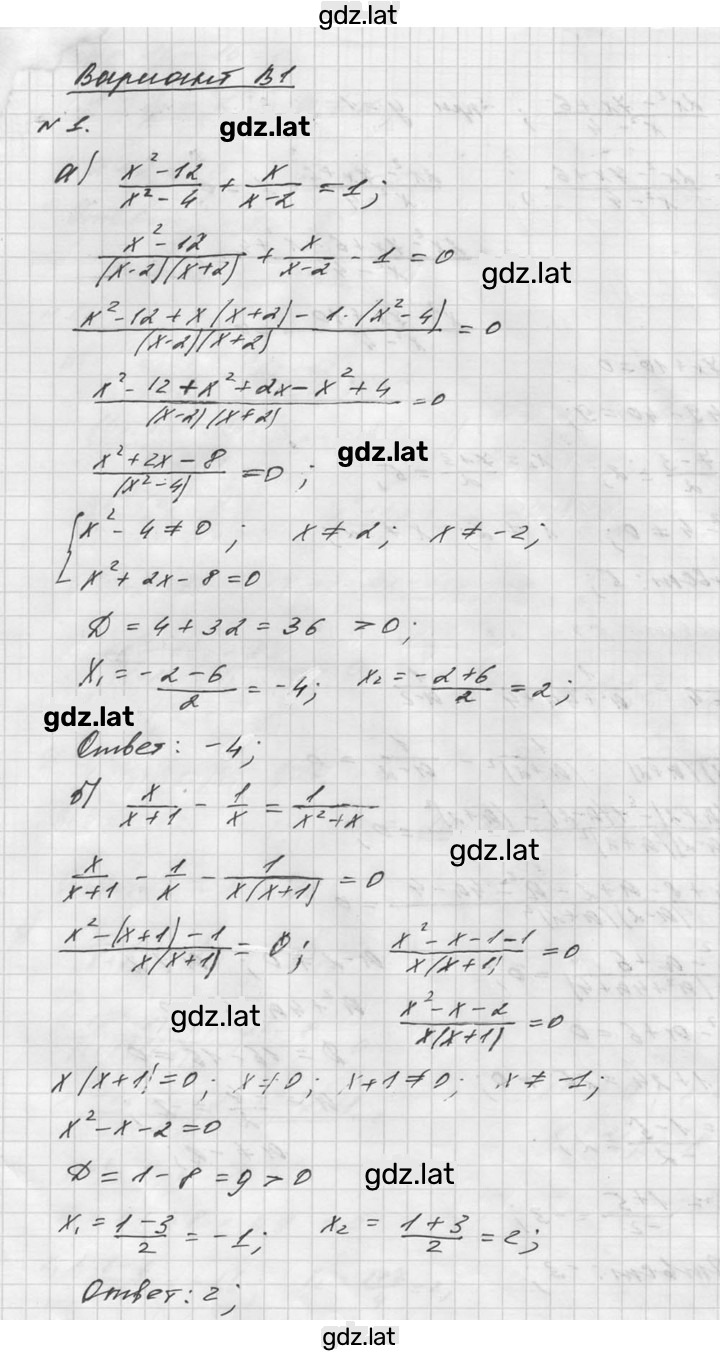 gdz.lat
Вариант В1
№ 1.
gdz.lat
а) (x² - 12)/(x² - 4) + x/(x - 2) = 1;
(x² - 12)/((x-2)(x+2)) + x/(x-2) - 1 = 0
gdz.lat
(x² - 12 + x(x+2) - 1·(x² - 4))/((x-2)(x+2)) = 0
(x² - 12 + x² + 2x - x² + 4)/((x-2)(x+2)) = 0
gdz.lat
(x² + 2x - 8)/(x² - 4) = 0;
x² - 4 ≠ 0; x ≠ 2; x ≠ -2;
x² + 2x - 8 = 0
D = 4 + 32 = 36 > 0;
x₁ = (-2-6)/2 = -4; x₂ = (-2+6)/2 = 2;
gdz.lat
Ответ: -4;
б) x/(x+1) - 1/x = 1/(x² + x)
gdz.lat
x/(x+1) - 1/x - 1/(x(x+1)) = 0
(x² - (x+1) - 1)/(x(x+1)) = 0; (x² - x - 1 - 1)/(x(x+1)) = 0
gdz.lat
(x² - x - 2)/(x(x+1)) = 0
x(x+1) ≠ 0; x ≠ 0; x+1 ≠ 0; x ≠ -1;
x² - x - 2 = 0
D = 1 - 8 = 9 > 0
gdz.lat
x₁ = (1-3)/2 = -1; x₂ = (1+3)/2 = 2;
Ответ: 2;
gdz.lat